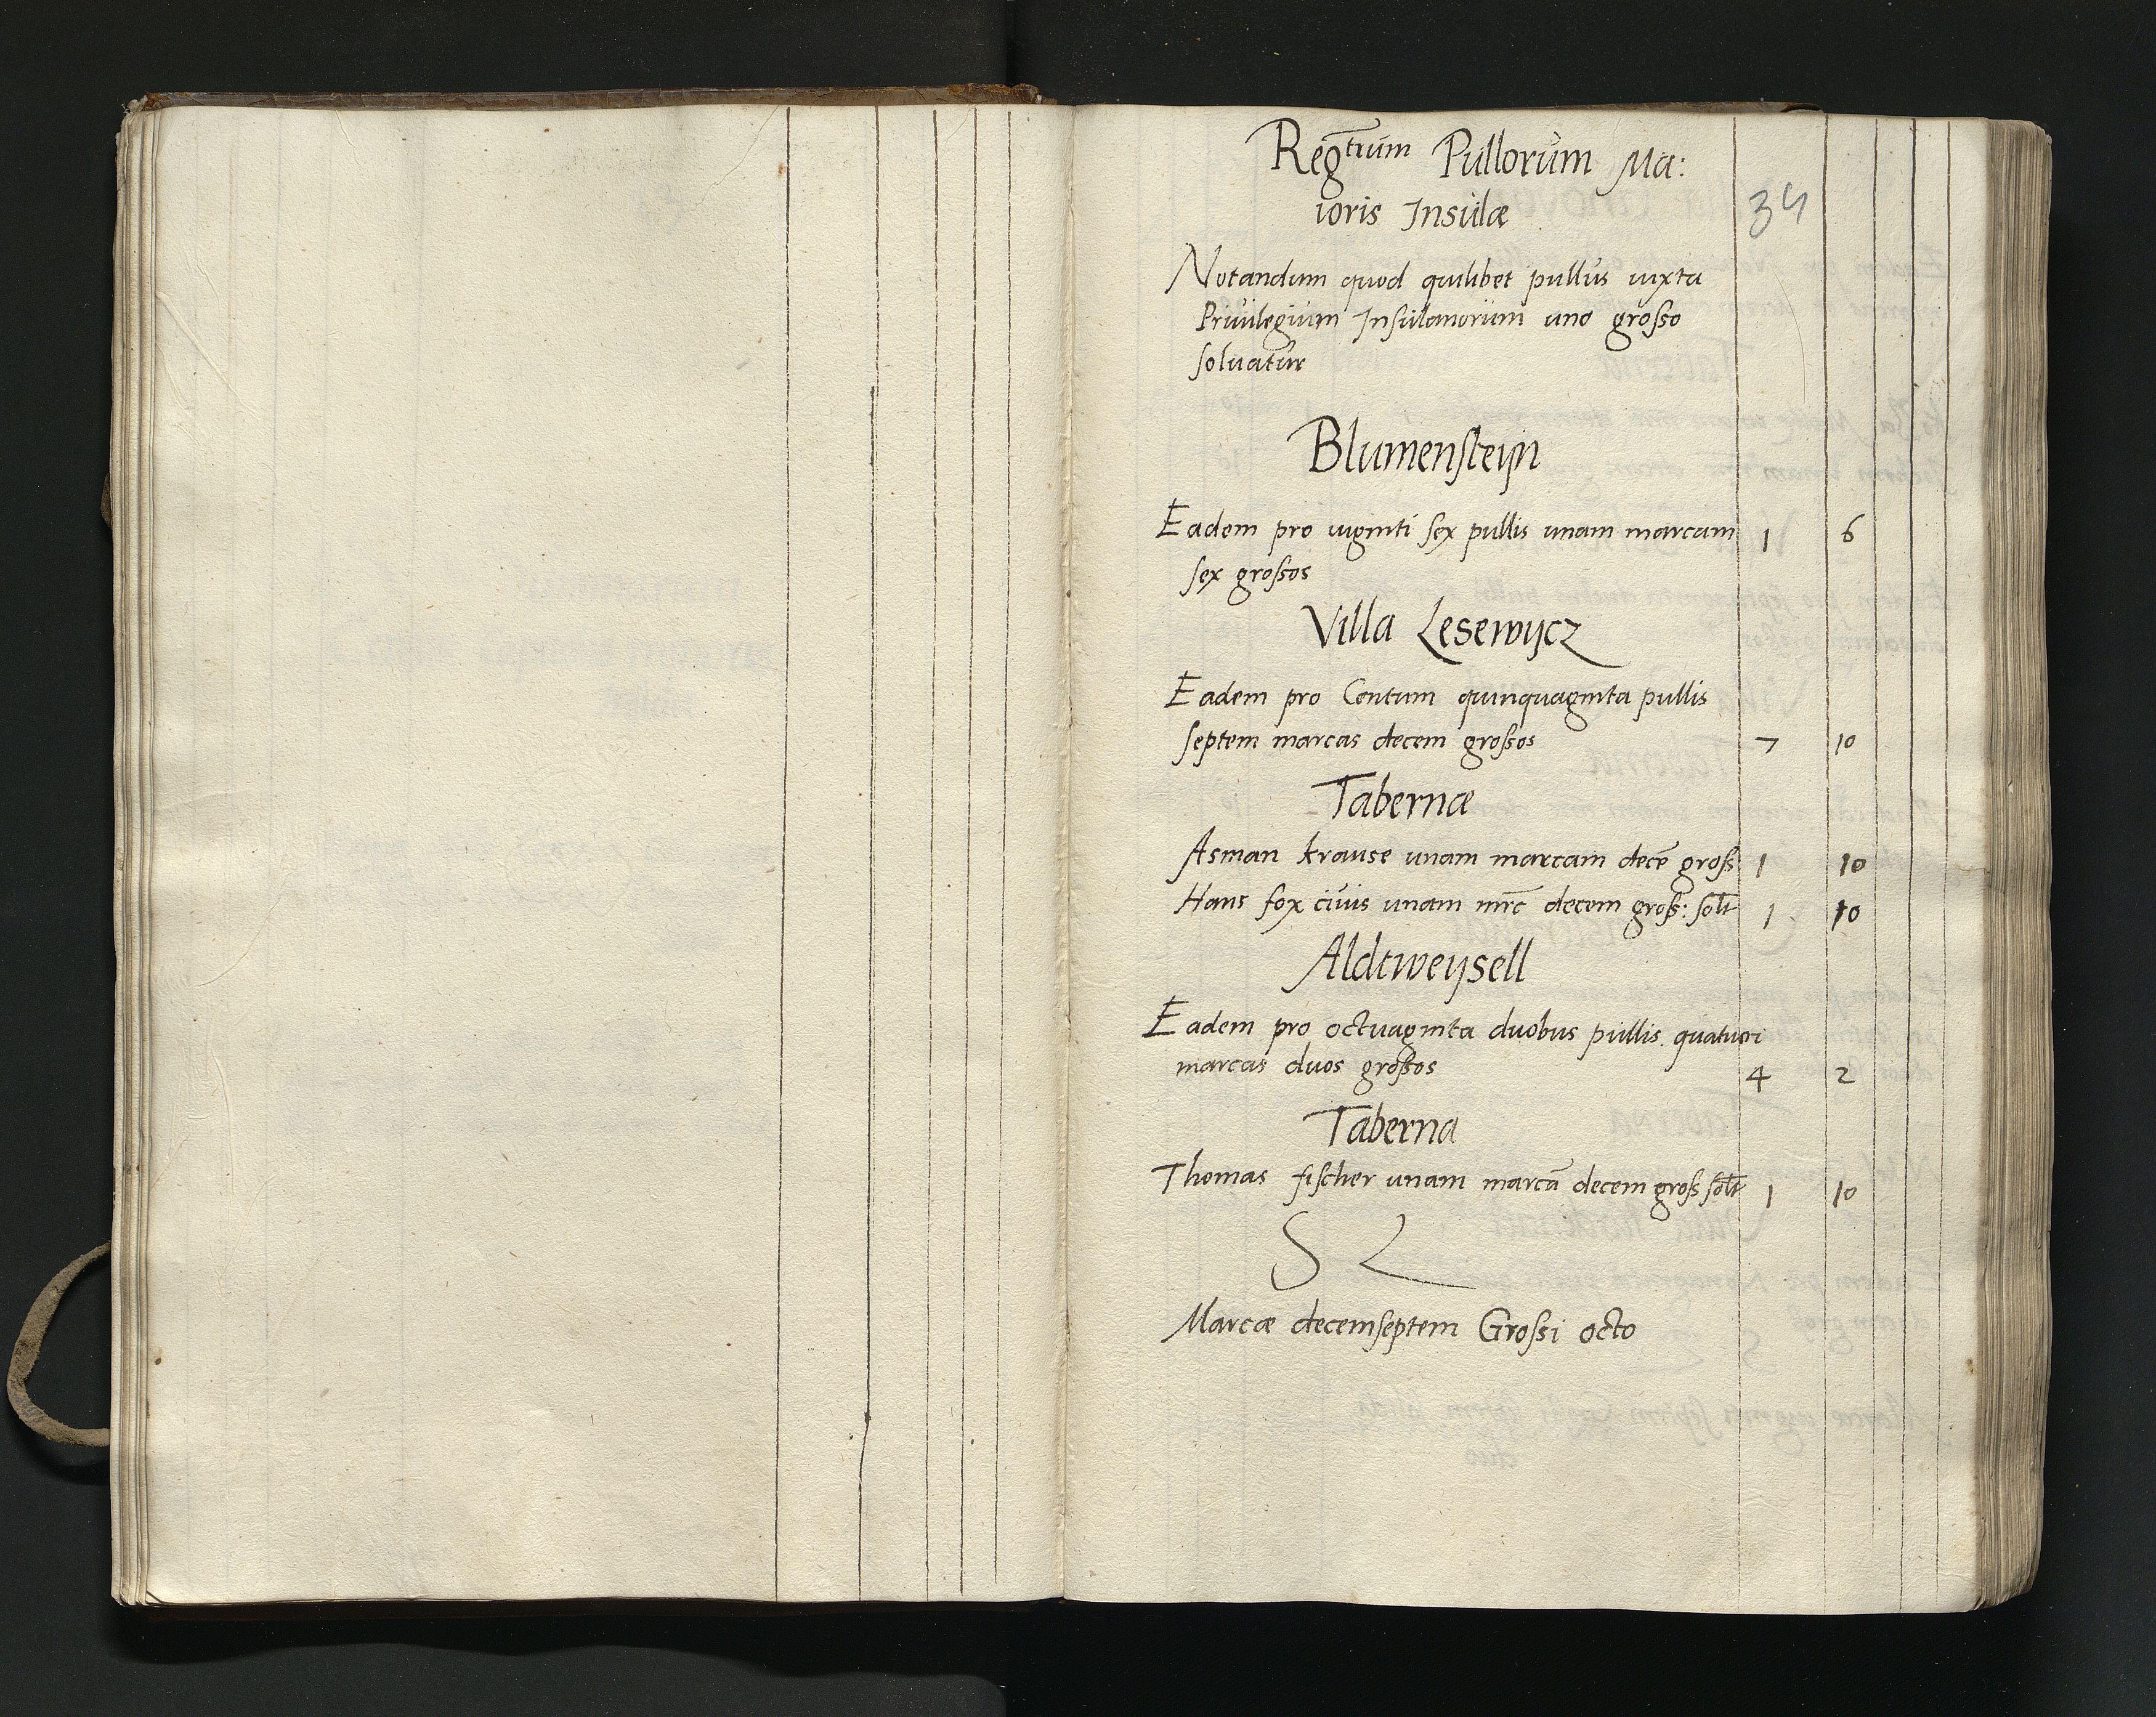 Reg^trum Pullorum Ma:
34
ioris Insulæ
Notandum quod quilibet pullus iuxta
Priuilegium Insulanorum uno grosso
soluatur
Blumensteijn
Eadem pro uiginti sex pullis unam marcam 1 6
sex grossos
Villa Lesewijcz
Eadem pro Centum quinquaginta pullis
septem marcas decem grossos 7 10
Tabernæ
Asman krause unam marcam decē gross 1 10
Hans fox ciuis unam mrc̄ decem gross: solt 1 10
Aldtweijsell
Eadem pro octuaginta duobus pullis quatuor
marcas duos grossos 4 2
Taberna
Thomas fischer unam marcā decem gross solt 1 10
S L
Marcæ decemseptem Grossi octo